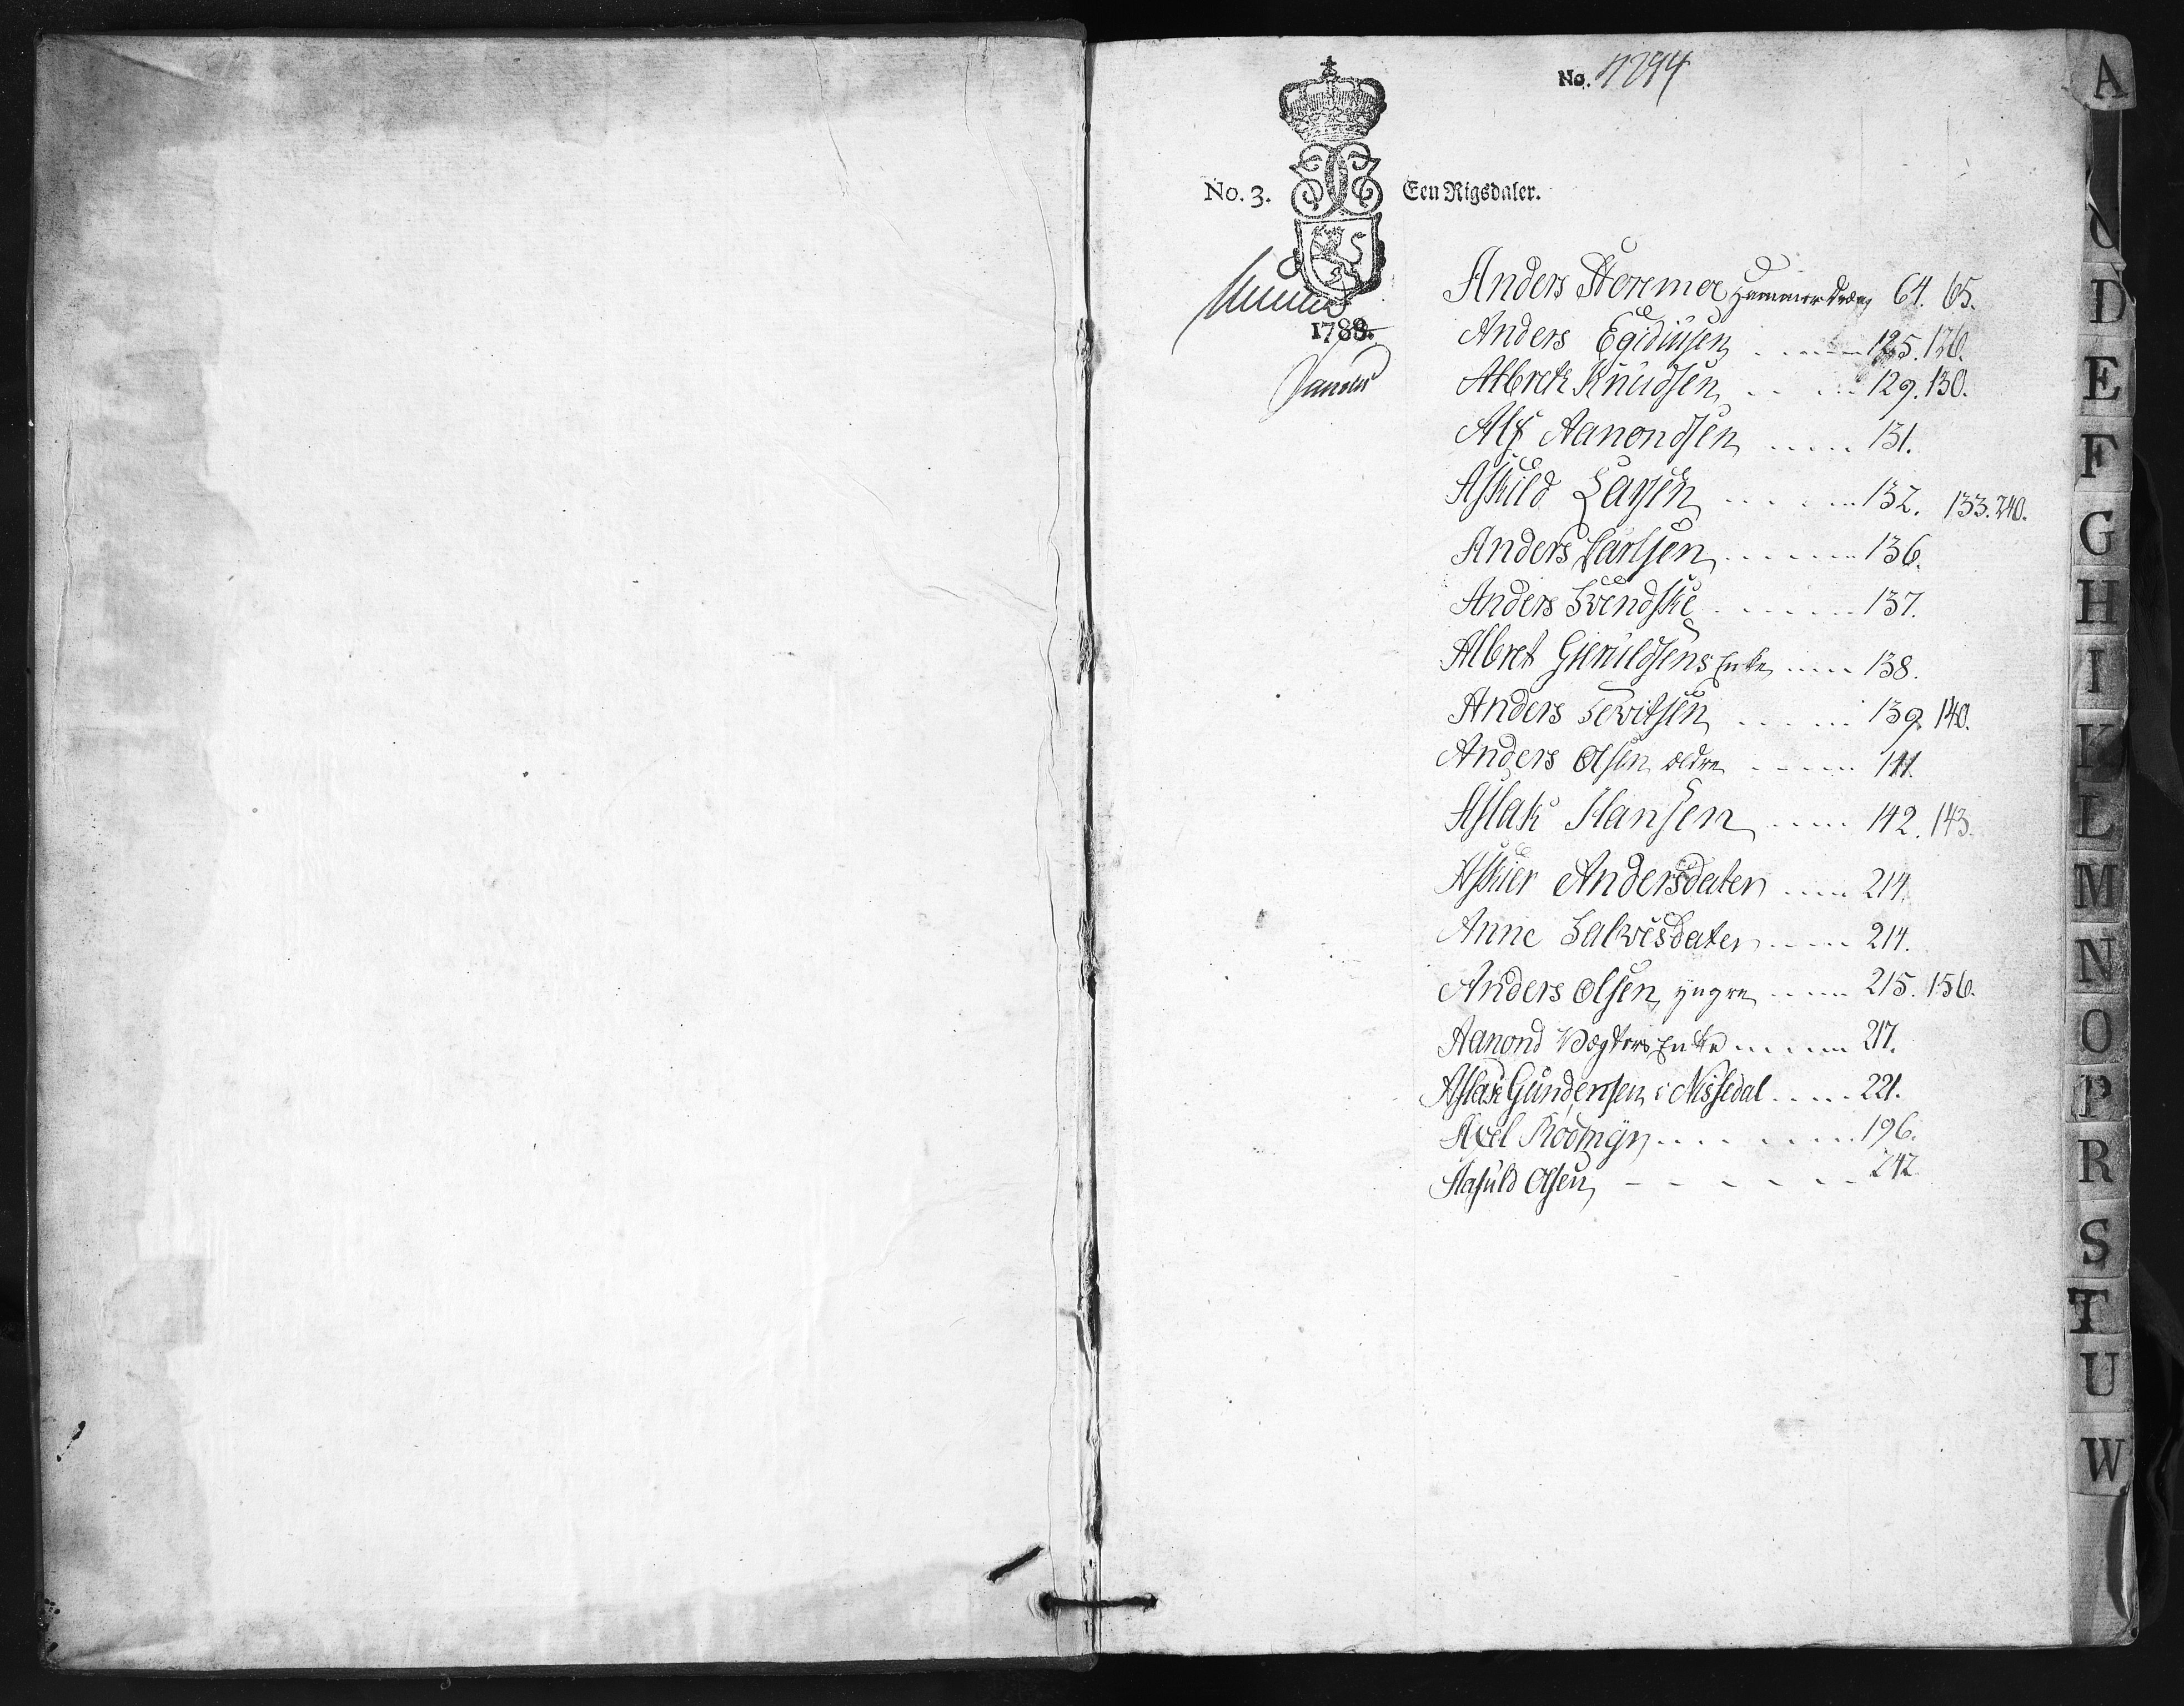 No. 4294
No. 3. Een Rigsdaler.
1788.
Anders Storemoe Hammerdreng 64. 65.
Anders Egidiusen 125. 126.
Albret Knudsen 129. 130.
Alf Aanondsen 131.
Askild Larsen 132. 133. 240.
Anders Carlsen 136.
Anders Svendske 137.
Albret Gieruldsens Enke 138.
Anders Sevitsen 139. 140.
Anders Olsen ældre 141.
Aslak Hansen 142. 143.
Askier Andersdater 214.
Anne Salvesdater 214.
Anders Olsen yngre 215. 156.
Aanond Vogters Enke 217.
Aslak Gundersen i Nissedal 221.
Axel Rodmyr 196.
Olsen 242
A
D
E
F
G
H
I
K
L
M
N
O
P
R
S
T
U
W